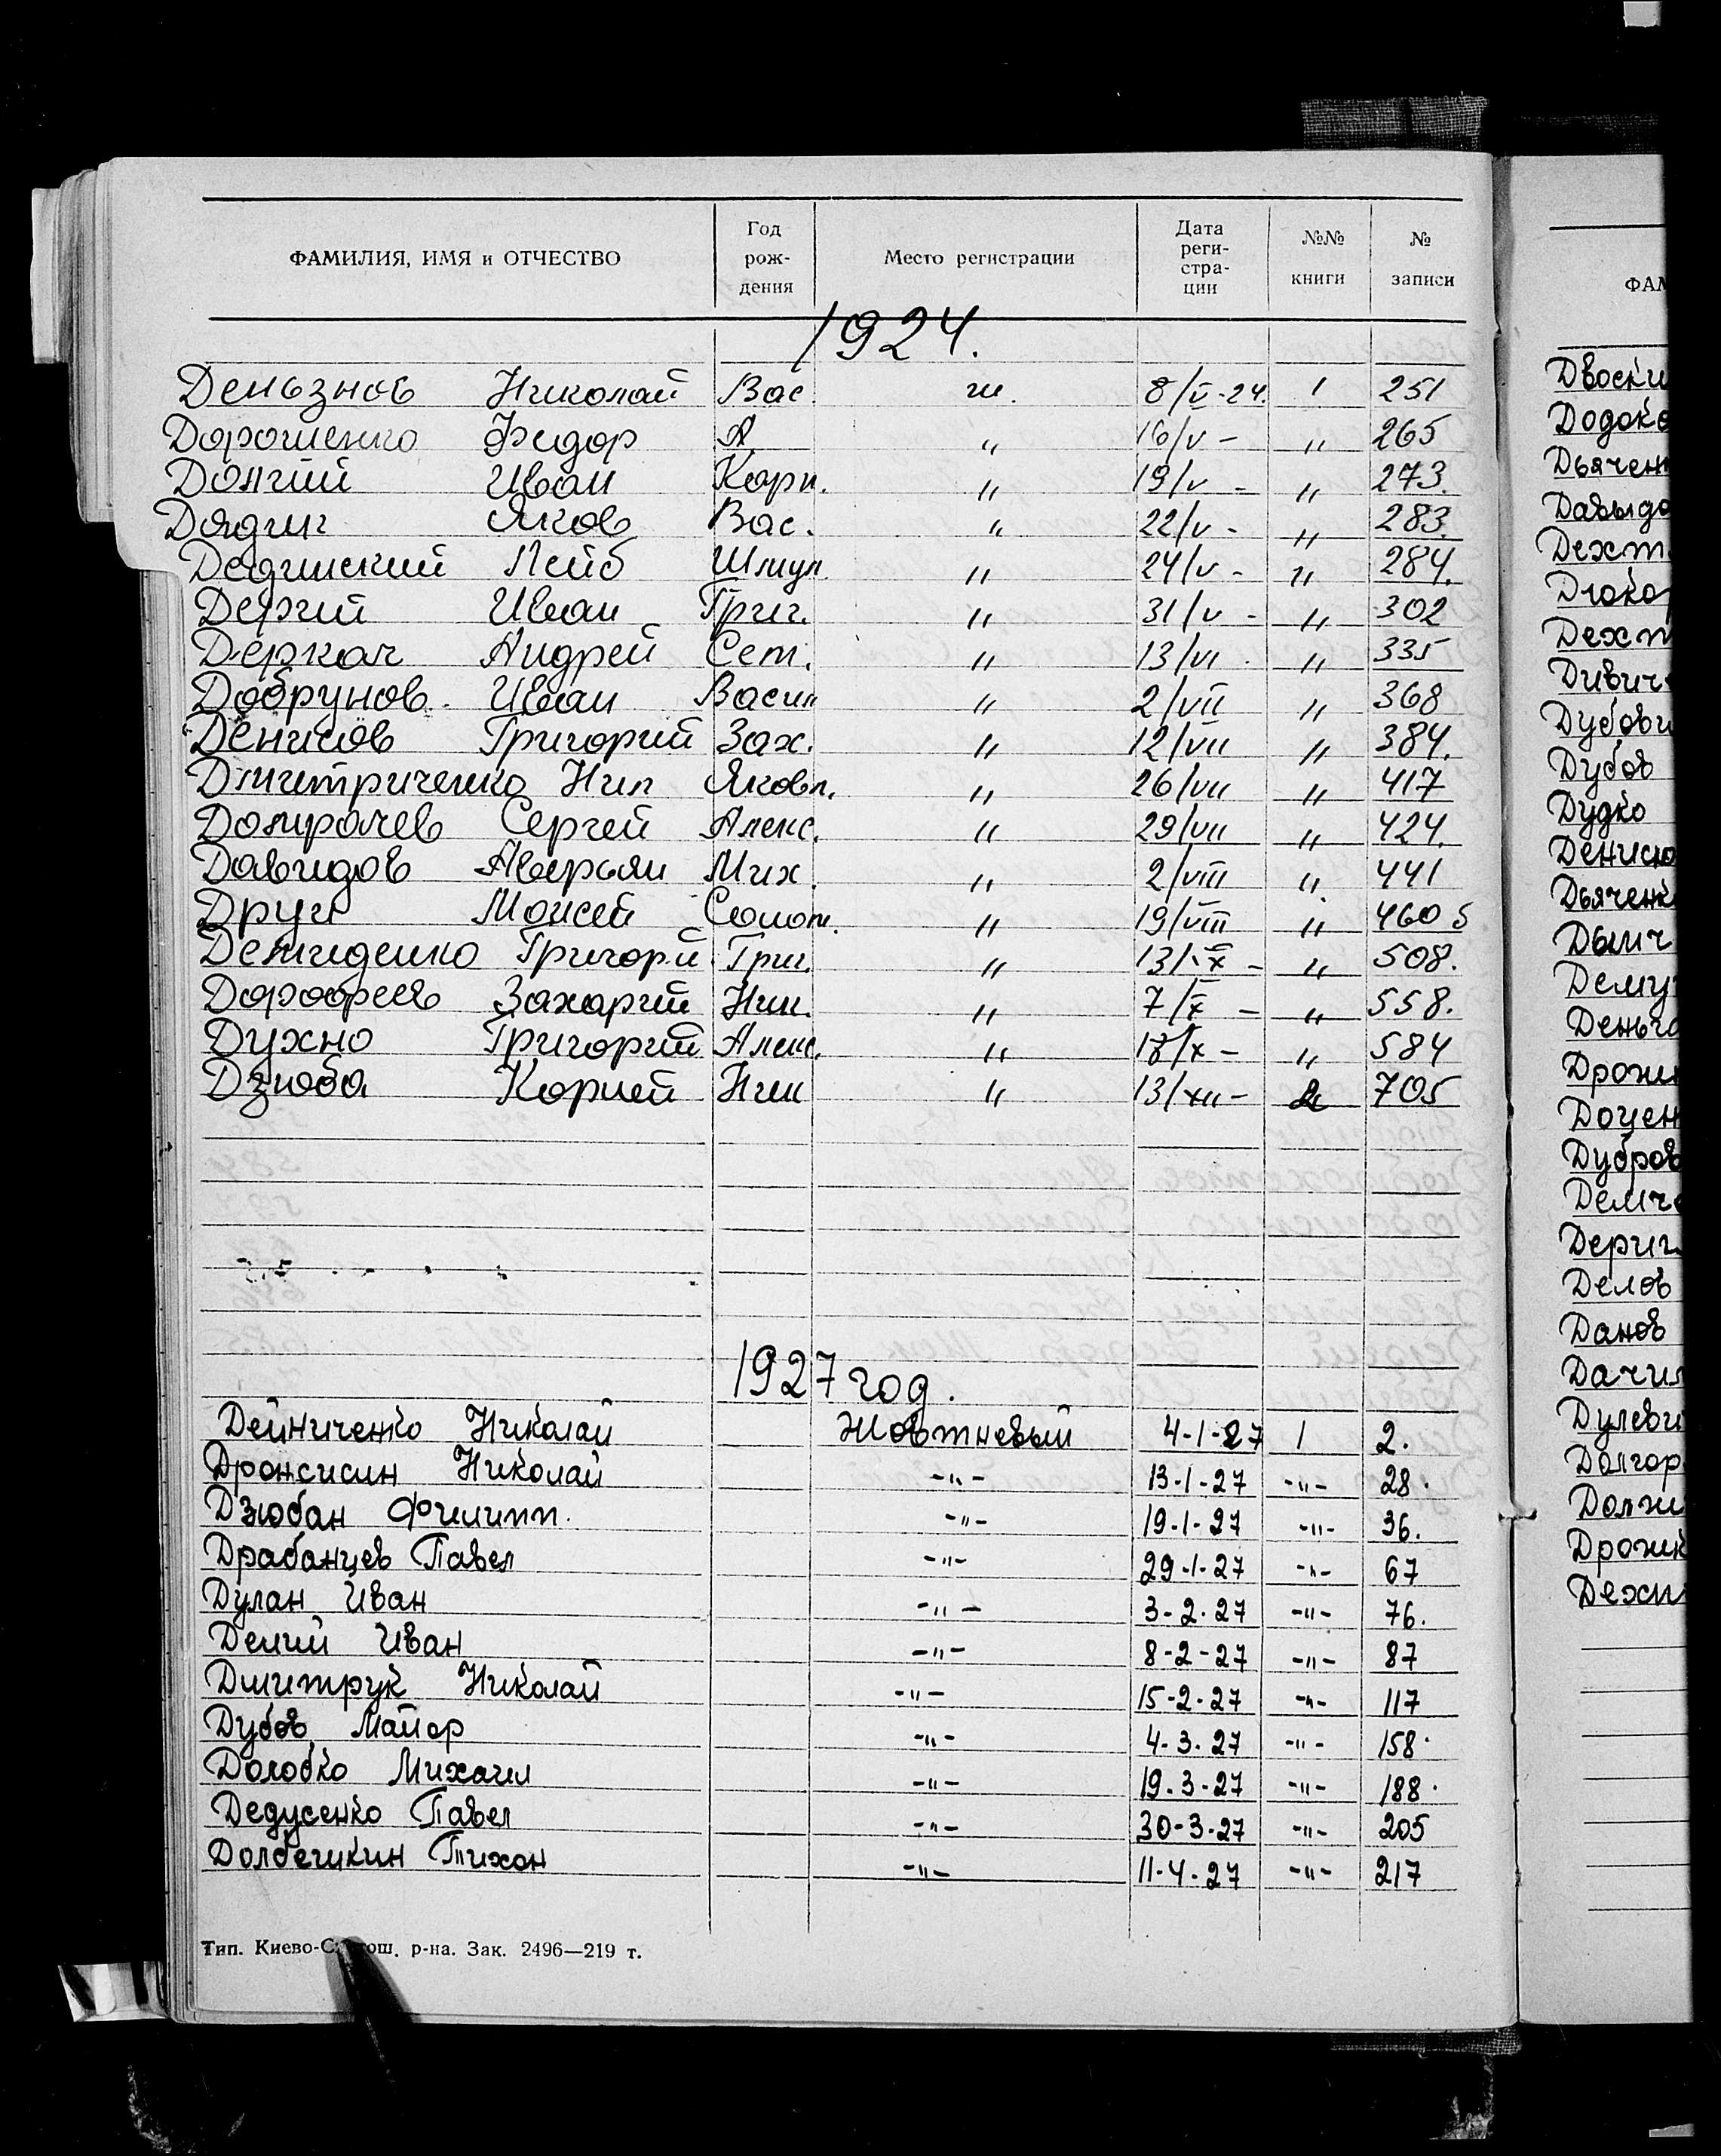 ФАМИЛИЯ, ИМЯ и ОТЧЕСТВО Год рож- дения Место регистрации Дата реги- стра- ции №№ книги № записи
1924.
Деньзнов Николай Вас. ж. 8/V-24. 1 251
Дорошенко Федор А " 16/V - " 265
Долгий Иван Карп. " 19/V - " 273.
Дядич Яков Вас. " 22/V - " 283.
Дединский Лейб Шмул. " 24/V - " 284.
Дергий Иван Григ. " 31/V - " 302
Деркач Андрей Сем. " 13/VI - " 335
Добрунов. Иван Васил " 2/VII " 368
Денисов Григорий Зах. " 12/VII " 384.
Дмитриченко Нил Яковл. " 26/VII " 417
Сергей Алекс. " 29/VII " 424.
Давидов Аверьян Мих. " 2/VIII " 441
Друг Моисей Солом. " 19/VIII " 460 5
Демиденко Григорий Григ. " 13/IX - " 508.
Дорофеев Захарий Ник. " 7/X - " 558.
Духно Григорий Алекс. " 18/X - " 584
Дзюба Корней Ник " 13/XII - 2 705
1927 год.
Дейниченко Николай Жовтневый 4-1-27 1 2.
Николай -"- 13-1-27 -"- 28.
Дзюбан Филипп. -"- 19-1-27 -"- 36.
Драбанцев Павел -"- 29-1-27 -"- 67
Дулан Иван -"- 3-2-27 -"- 76.
Делий Иван -"- 8-2-27 -"- 87
Дмитрук Николай -"- 15-2-27 -"- 117
Дубов Майор -"- 4-3-27 -"- 158.
Долобко Михаил -"- 19-3-27 -"- 188.
Дедусенко Павел -"- 30-3-27 -"- 205
Долбешкин Тихон -"- 11-4-27 -"- 217
Тип. Киево-С ош. р-на. Зак. 2496—219 т.
ФАМ
Двоски
Додоко
Дьячен
Давыдо
Дехт
Дюко
Дехт
Дивич
Дубови
Дубов
Дудко
Денисю
Дьяченк
Дымч
Демч
Деньго
Дрожж
Доцен
Дубров
Демч
Дериг
Делов
Данов
Дачил
Дулеви
Долгор
Должи
Дрожж
Дехт